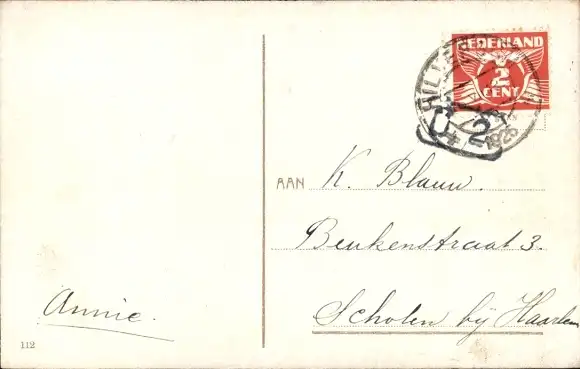 NEDERLAND
2
CENT
1926
AAN K. Blauw.
Beukenstraat 3.
Schoten bij Haarlem
Annie.
112